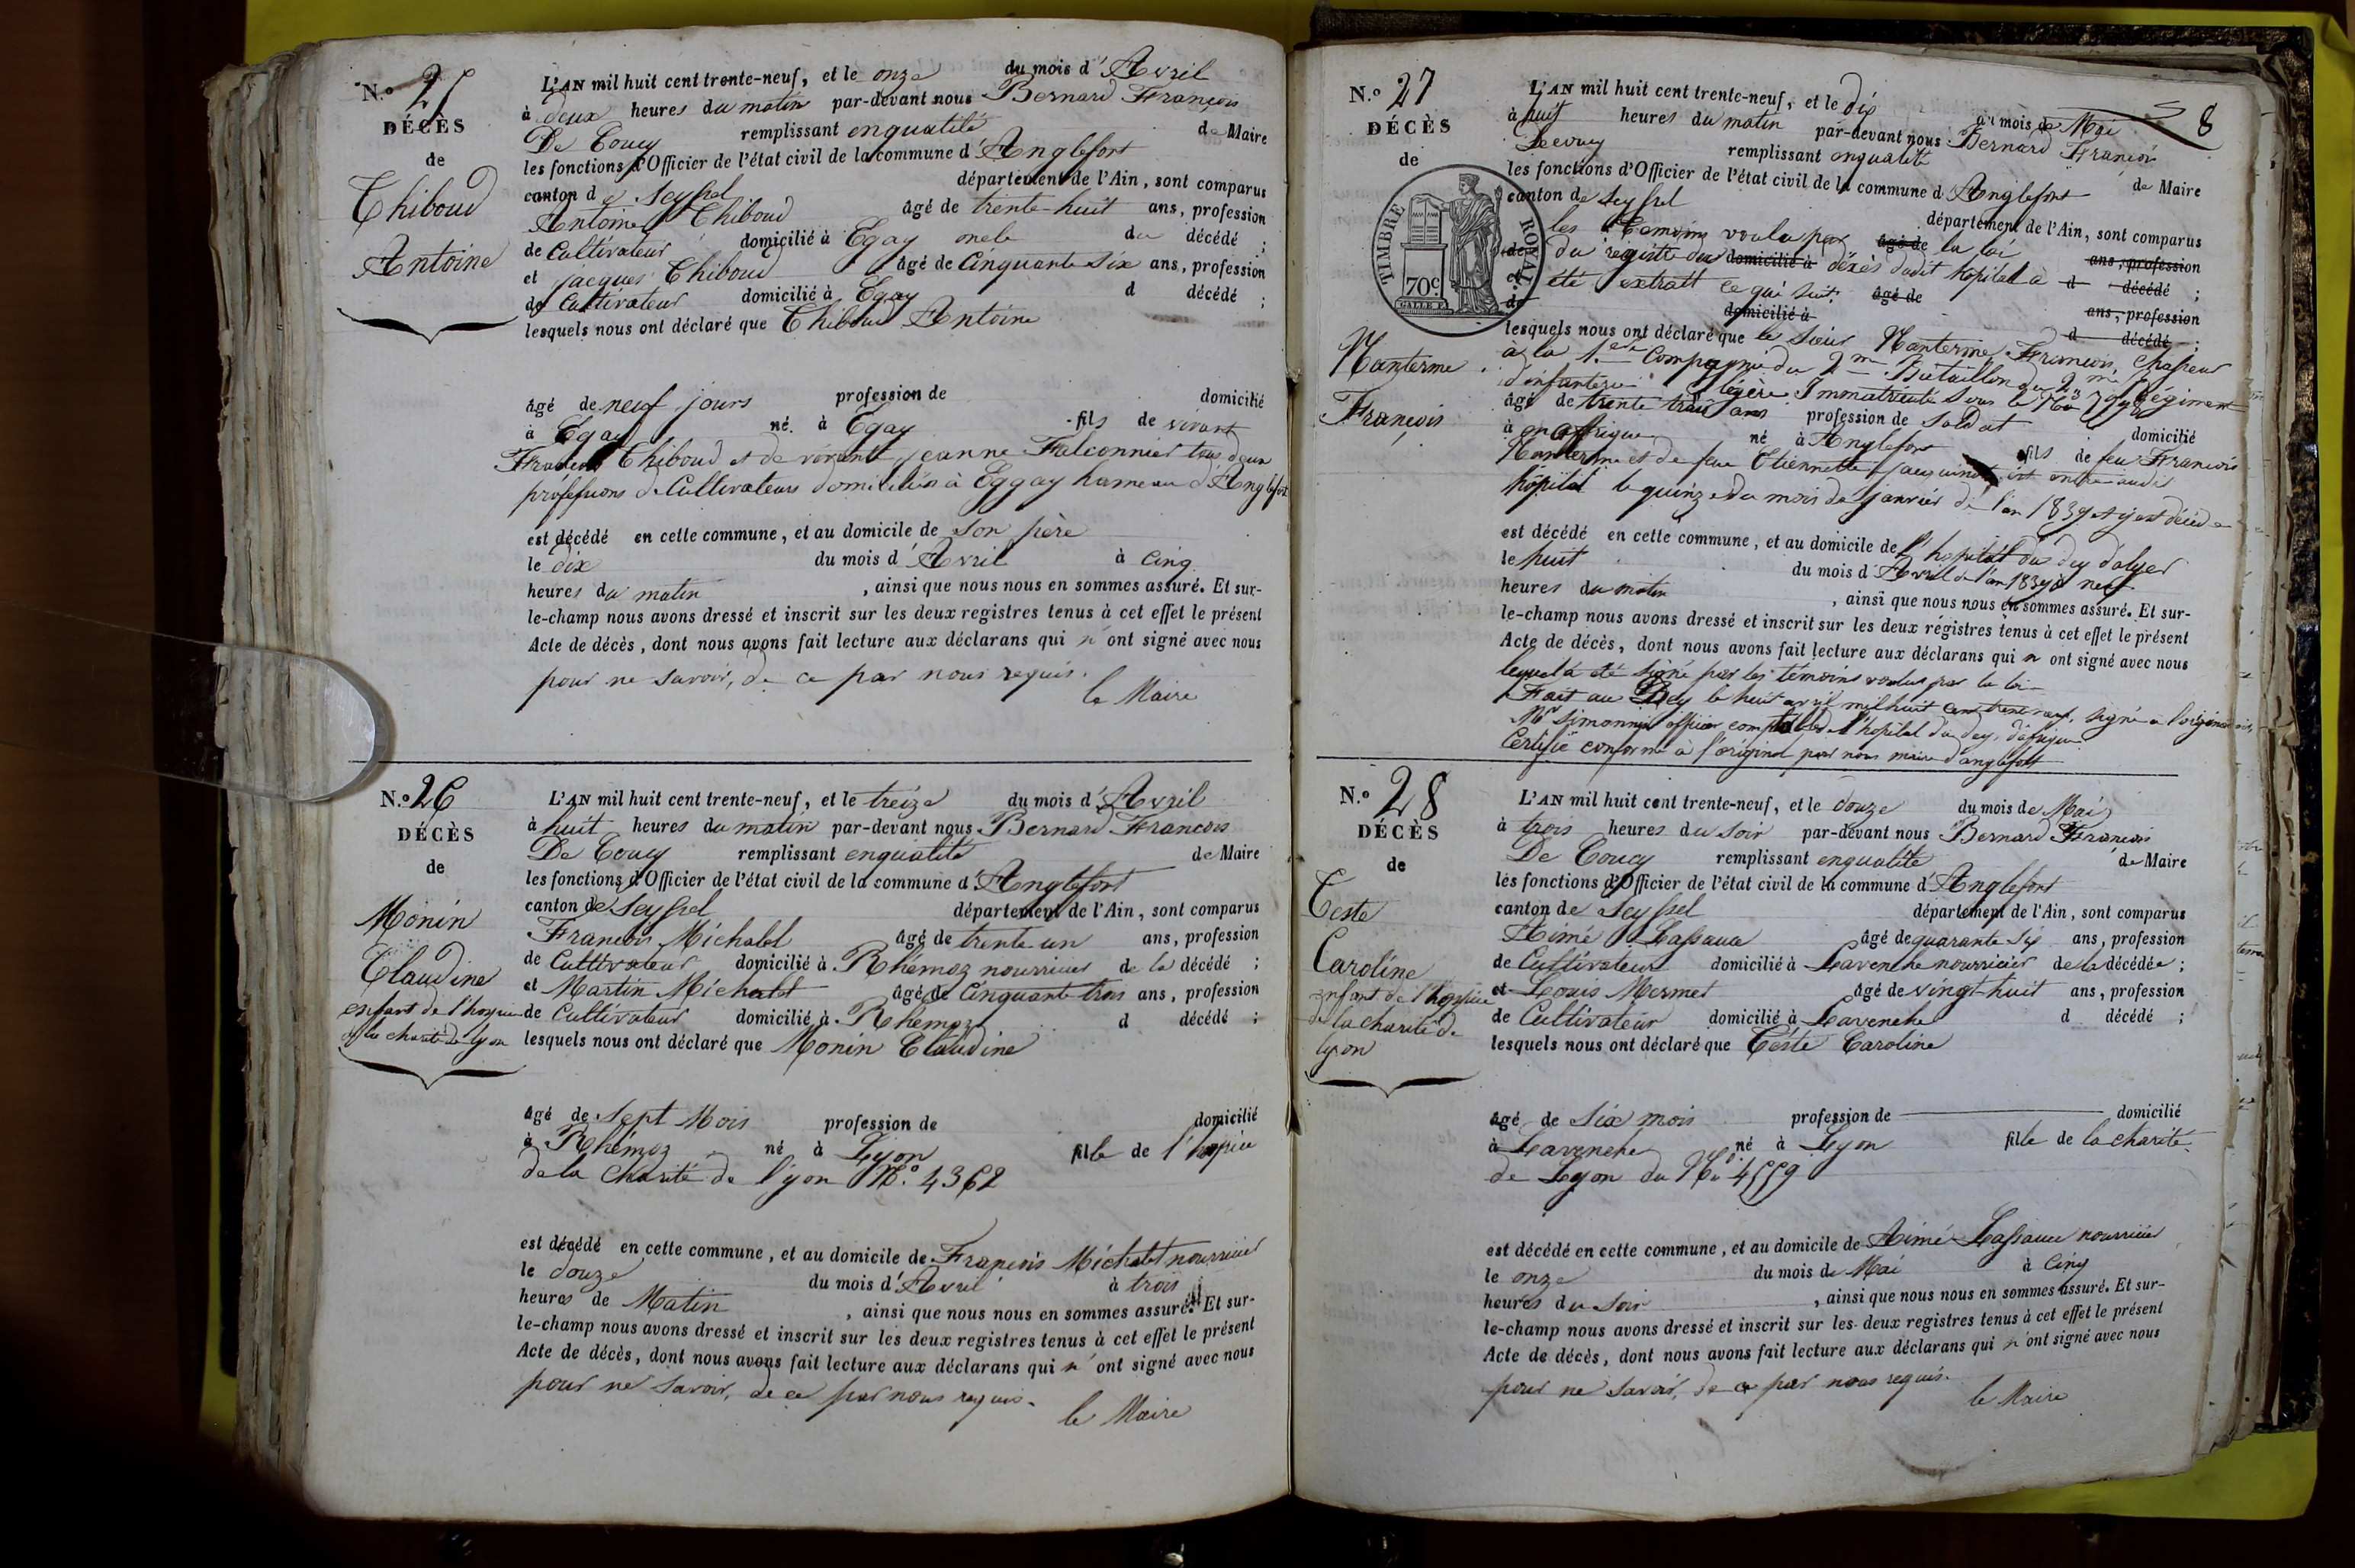 N.º 25
DÉCÈS
de
Thiboud
Antoine
L'AN mil huit cent trente-neuf, et le onze du mois d'Avril
à deux heures du matin par-devant nous Bernard François
De Coucy remplissant enqualité de Maire
les fonctions d'Officier de l'état civil de la commune d'Anglefort
canton de Seyssel département de l'Ain, sont comparus
Antoine Thiboud âgé de trente-huit ans, profession
de Cultivateur domicilié à Egay oncle du décédé ;
et jacques Thiboud âgé de Cinquante Six ans, profession
de Cultivateur domicilié à Egay d décédé ;
lesquels nous ont déclaré que Thiboud Antoine
âgé de neuf jours profession de domicilié
à Egay né à Egay fils de vivant
François Thiboud et de vivante jeanne Falconnier tous deux
professions de Cultivateurs domiciliés à Eggay hameau d'Anglefort
est décédé en cette commune, et au domicile de son père
le dix du mois d'Avril à Cinq
heures du matin , ainsi que nous nous en sommes assuré. Et sur-
le-champ nous avons dressé et inscrit sur les deux registres tenus à cet effet le présent
Acte de décès, dont nous avons fait lecture aux déclarans qui n'ont signé avec nous
pour ne savoir, de ce par nous requis.
le Maire
N.º 26
DÉCÈS
de
Monin
Claudine
enfant de l'hospice
de la charité de lyon
L'AN mil huit cent trente-neuf, et le treize du mois d'Avril
à huit heures du matin par-devant nous Bernard François
De Coucy remplissant enqualité de Maire
les fonctions d'Officier de l'état civil de la commune d'Anglefort
canton de Seyssel département de l'Ain, sont comparus
François Michalet âgé de trente-un ans, profession
de Cultivateur domicilié à Rhémoz nourricier de la décédé ;
et Martin Michalet âgé de Cinquante trois ans, profession
de Cultivateur domicilié à Rhémoz d décédé ;
lesquels nous ont déclaré que Monin Claudine
âgé de Sept Mois profession de domicilié
à Rhémoz né à Lyon fille de l'hospice
de la Charité de lyon N.º 4362
est décédé en cette commune, et au domicile de François Michalet nourricier
le douze du mois d'Avril à trois
heures de Matin , ainsi que nous nous en sommes assuré. Et sur-
le-champ nous avons dressé et inscrit sur les deux registres tenus à cet effet le présent
Acte de décès, dont nous avons fait lecture aux déclarans qui n'ont signé avec nous
pour ne savoir, de ce par nous requis.
le Maire
8
N.º 27
DÉCÈS
de
TIMBRE ROYAL
70c.
Nanterme
François
L'AN mil huit cent trente-neuf, et le dix du mois de Mai
à huit heures du matin par-devant nous Bernard François
Decoucy remplissant enqualité de Maire
les fonctions d'Officier de l'état civil de la commune d'Anglefort
canton de Seyssel département de l'Ain, sont comparus
les témoins voulu par âgé de la loi ans, profession
de du registre des domicilié à décès dudit hôpital a d décédé ;
et été extrait ce qui suit. âgé de ans, profession
de domicilié à d décédé ;
lesquels nous ont déclaré que le Sieur Nanterme François, chasseur
à la 1.ere Compagnie du 2.me Bataillon du 2.me Régiment
d'infanterie légère Immatriculé Sous le No
âgé de trente trois ans profession de Soldat domicilié
à en affrique né à Anglefort fils de feu François
Nanterme et de feue Etiennette est entré audit
hôpital le quinze du mois de Janvier de l'an 1839 et y est décédé
est décédé en cette commune, et au domicile de l'hopital du dey d'alger
le huit du mois d'Avril de l'an 1839 à neuf
heures du matin , ainsi que nous nous en sommes assuré. Et sur-
le-champ nous avons dressé et inscrit sur les deux régistres tenus à cet effet le présent
Acte de décès, dont nous avons fait lecture aux déclarans qui n ont signé avec nous
lequel a été signé par les témoins voulus par la loi
Fait au Dey le huit avril mil huit cent trente neuf, signé à l'original
Mr Simonnet officier comptable de l'hopital du dey, d'afrique.
Certifié conforme à l'original par nous maire d'anglefort
N.º 28
DÉCÈS
de
Teste
Caroline
enfant de l'hospice
de la charité de
lyon
L'AN mil huit cent trente-neuf, et le douze du mois de Mai
à trois heures du Soir par-devant nous Bernard François
De Coucy remplissant enqualité de Maire
les fonctions d'Officier de l'état civil de la commune d'Anglefort
canton de Seyssel département de l'Ain, sont comparus
Aimé Lassauce âgé de quarante six ans, profession
de Cultivateur domicilié à Lavenche nourricier de la décédée ;
et Louis Mermet âgé de vingt-huit ans, profession
de Cultivateur domicilié à Lavenche d décédé ;
lesquels nous ont déclaré que Teste Caroline
âgé de Six mois profession de domicilié
à Lavenche né à Lyon fille de la charité
de Lyon du No 4559
est décédé en cette commune, et au domicile de Aimé Lassauce nourricier
le onze du mois de Mai à Cinq
heures du Soir , ainsi que nous nous en sommes assuré. Et sur-
le-champ nous avons dressé et inscrit sur les deux registres tenus à cet effet le présent
Acte de décès, dont nous avons fait lecture aux déclarans qui n'ont signé avec nous
pour ne savoir, de ce par nous requis.
le Maire